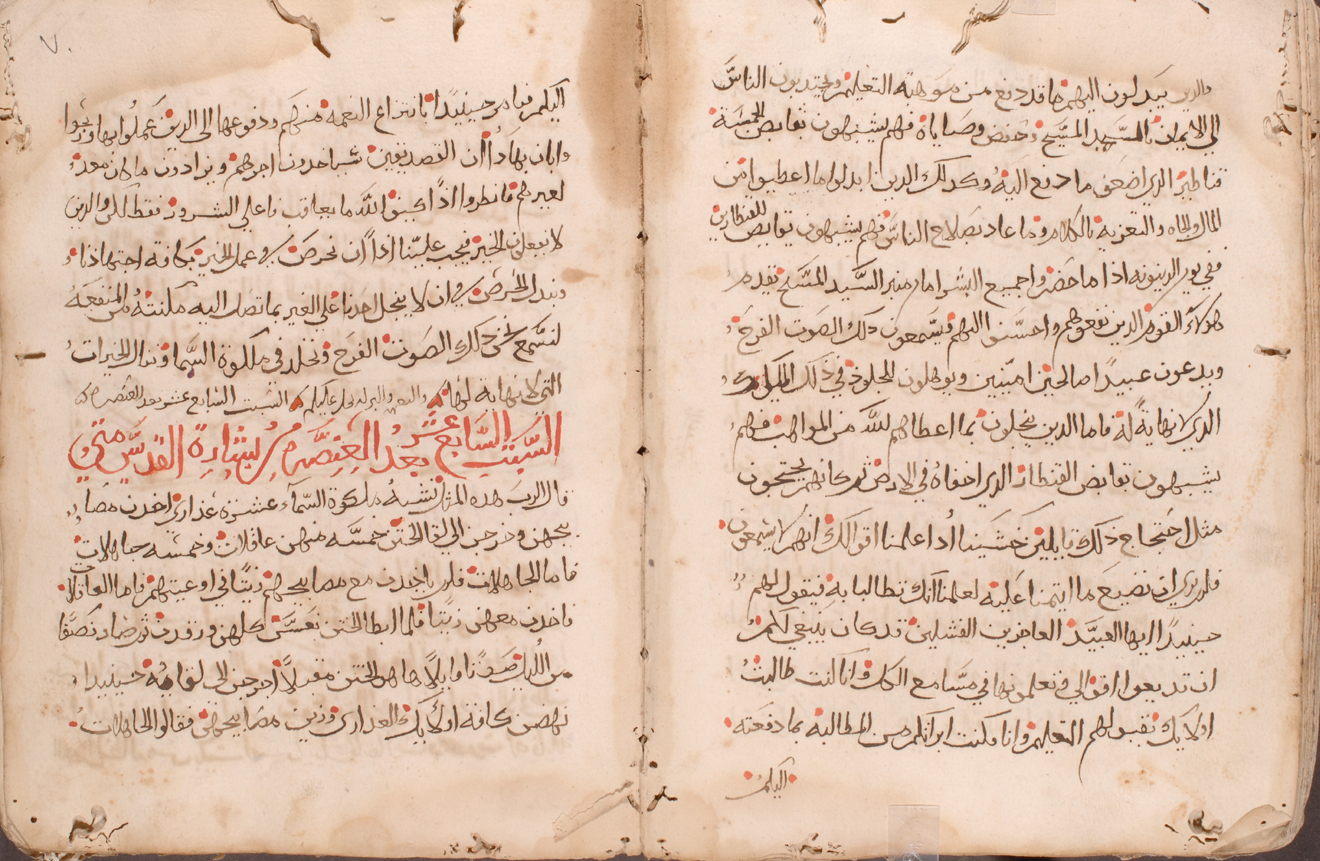 والدين يبدلون اليهم ما قد دفع من موهبة التعليم ويجتدبون الناس
الى الايمان بالسيد المسيح وحفض وصاياه فهم يشبهون نقابض الخمسة
قناطير الدي اضعف ما دفع اليه وكدلك الدين ادا بدلوا ما اعطيوا من
المال والجاه والتعزيه بالكلام وما عاد بصلاح الناس فهم يشبهون نقابض القنطارين
ففي يوم الدينونه ادا ما حضروا جميع البشر امام منبر السيد المسيح تقدم
هولاء القوم الدين نفعوهم واحسنوا اليهم ويسمعون دلك الصوت الفرح
ويدعون عبيدا صالحين امينين ويوهلون للخلود في دلك الملك
الدي لا نهاية له فاما الدين يبخلون بما اعطاهم الله من المواهب فهم
يشبهون نقابض القنطار الدي اخفاه في الارض ثم كانهم يحتجون
مثل احتجاج دلك قايلين خشينا ادا علمنا اقوالك انهم لا يسمعون
فلم نرى ان نضيع ما ايتمنا عليه لعلمنا انك تطالبنا به فيقول لهم
حينيدا ايها العبيد العاجزين الفشلين قد كان ينبغي لكم
ان تديعوا اقوالي وتعلمونها في مسامع الكل وانا كنت طالبت
اولايك بقبولهم التعليم وانا فكنت ابرانكم من المطالبه بما دفعته
اليكم
٧٠
اليكم فيامر حينيدا بانتزاع النعمه منهم ودفوعها الى الدين عملوا بها وربحوا
وابان بهادا ان الصديقين سياخدون اجرهم ويزادون ما كان معد
لغيرهم فانظروا ادا كيف الله ما يعاقب فاعلي الشرور فقط لكن والدين
لا يفعلون الخير فيجب علينا ادا ان نحرص في عمل الخير بكافة اجتهادنا
ونبدل الحرص في ان لا يبخل احدنا على الغير بما تصل اليه مكنته من المنفعه
لنسمع نحن دلك الصوت الفرح ونخلد في ملكوة السما وننال الخيرات
التي لا نهاية لها السبت السابع عشر بعد العنصره
السبت السابع عشر بعد العنصرة من بشارة القديس متى
قال الرب هده المثل تشبه ملكوة السماء عشرة عدارى اخدن مصا
بيحهن وخرجن الى لقا الختن خمسه منهن عاقلات وخمسه جاهلات
فاما الجاهلات فلم ياخدن مع مصابيحهم زيتا في اوعيتهم فاما العاقلات
فاخدن معهن زيتا فلما ابطا الختن نعسن كلهن ورقدن ثم صار نصف
من الليل صوتا قايلا هاهو الختن مقبلا اخرجن الى لقاه حينيدا
نهض كافة اولايك العدارى وزين مصابيحهن فقالوا الجاهلات